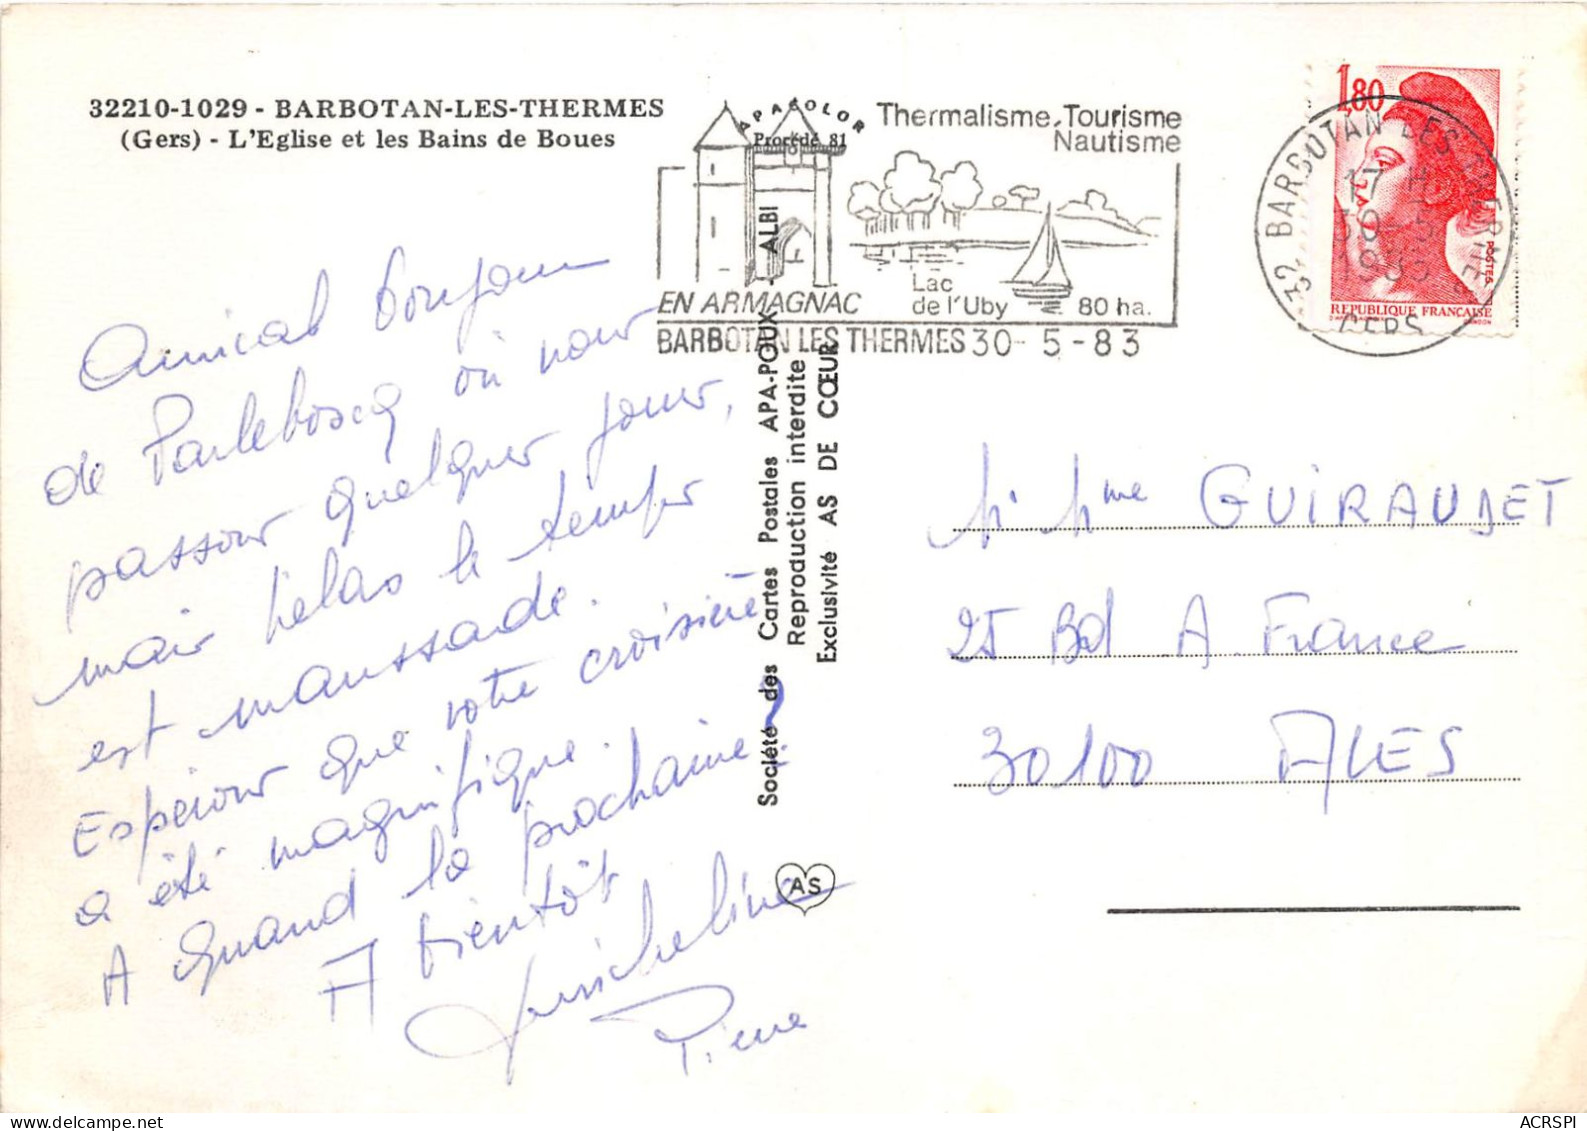 32210-1029 - BARBOTAN-LES-THERMES
(Gers) - L'Eglise et les Bains de Boues
APACOLOR
Procédé 81
Thermalisme, Tourisme
Nautisme
Lac
de l'Uby
80 ha.
EN ARMAGNAC
BARBOTAN LES THERMES 30-5-83
32 BARBOTAN LES THERMES
17 H
30-5
1983
GERS
1,80
POSTES
REPUBLIQUE FRANÇAISE
Amical bonjour
de Parleboscq où nous
passons quelques jours,
mais hélas le temps
est maussade.
Espérons que votre croisière
a été magnifique.
A quand la prochaine?
A bientôt
Micheline
Pierre
Société des Cartes Postales APA-POUX - ALBI
Reproduction interdite
Exclusivité AS DE CŒUR
AS
M. Mme GUIRAUDET
25 Bd A. France
30100 ALES
ACRSPI